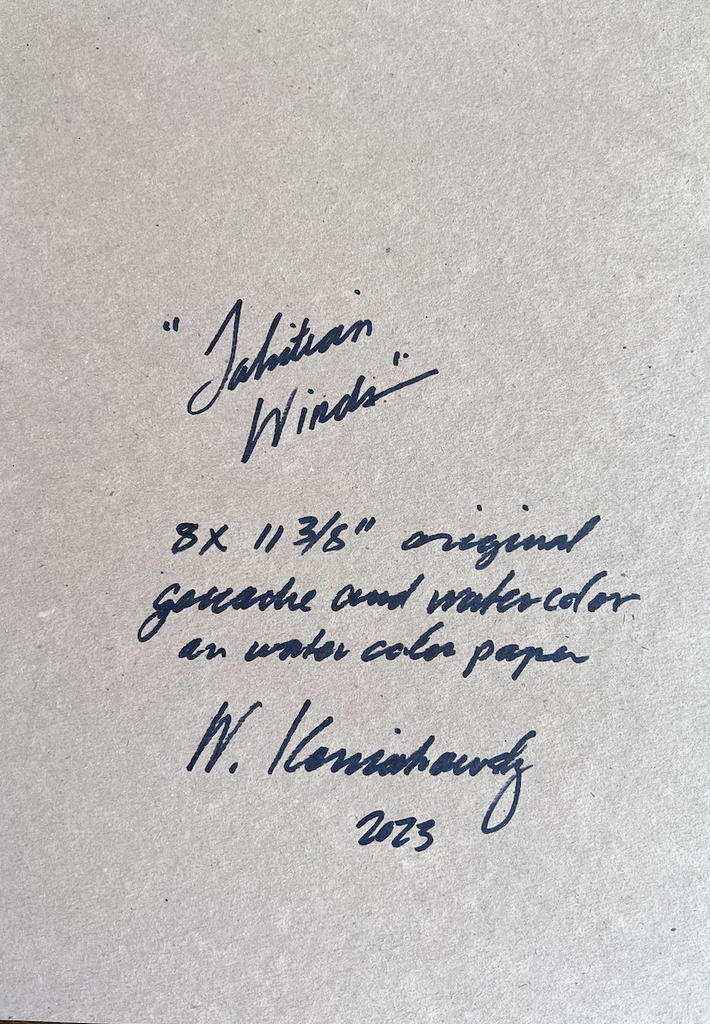 "Tahitian
Winds"
8X 11 3/8" original
gouache and watercolor
on water color paper
W.
2023